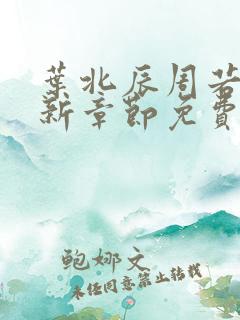 葉北辰周若
新章節免費
鲍娜文
未经同意禁止转载